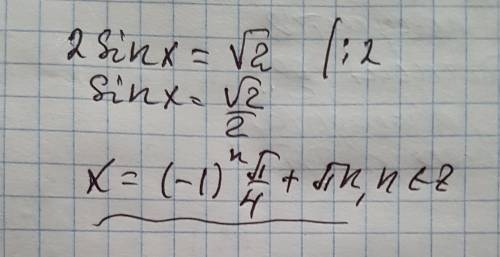 2 sin x = √2 /:2
sin x = √2/2
x = (-1)ⁿ π/4 + πn, n ∈ z